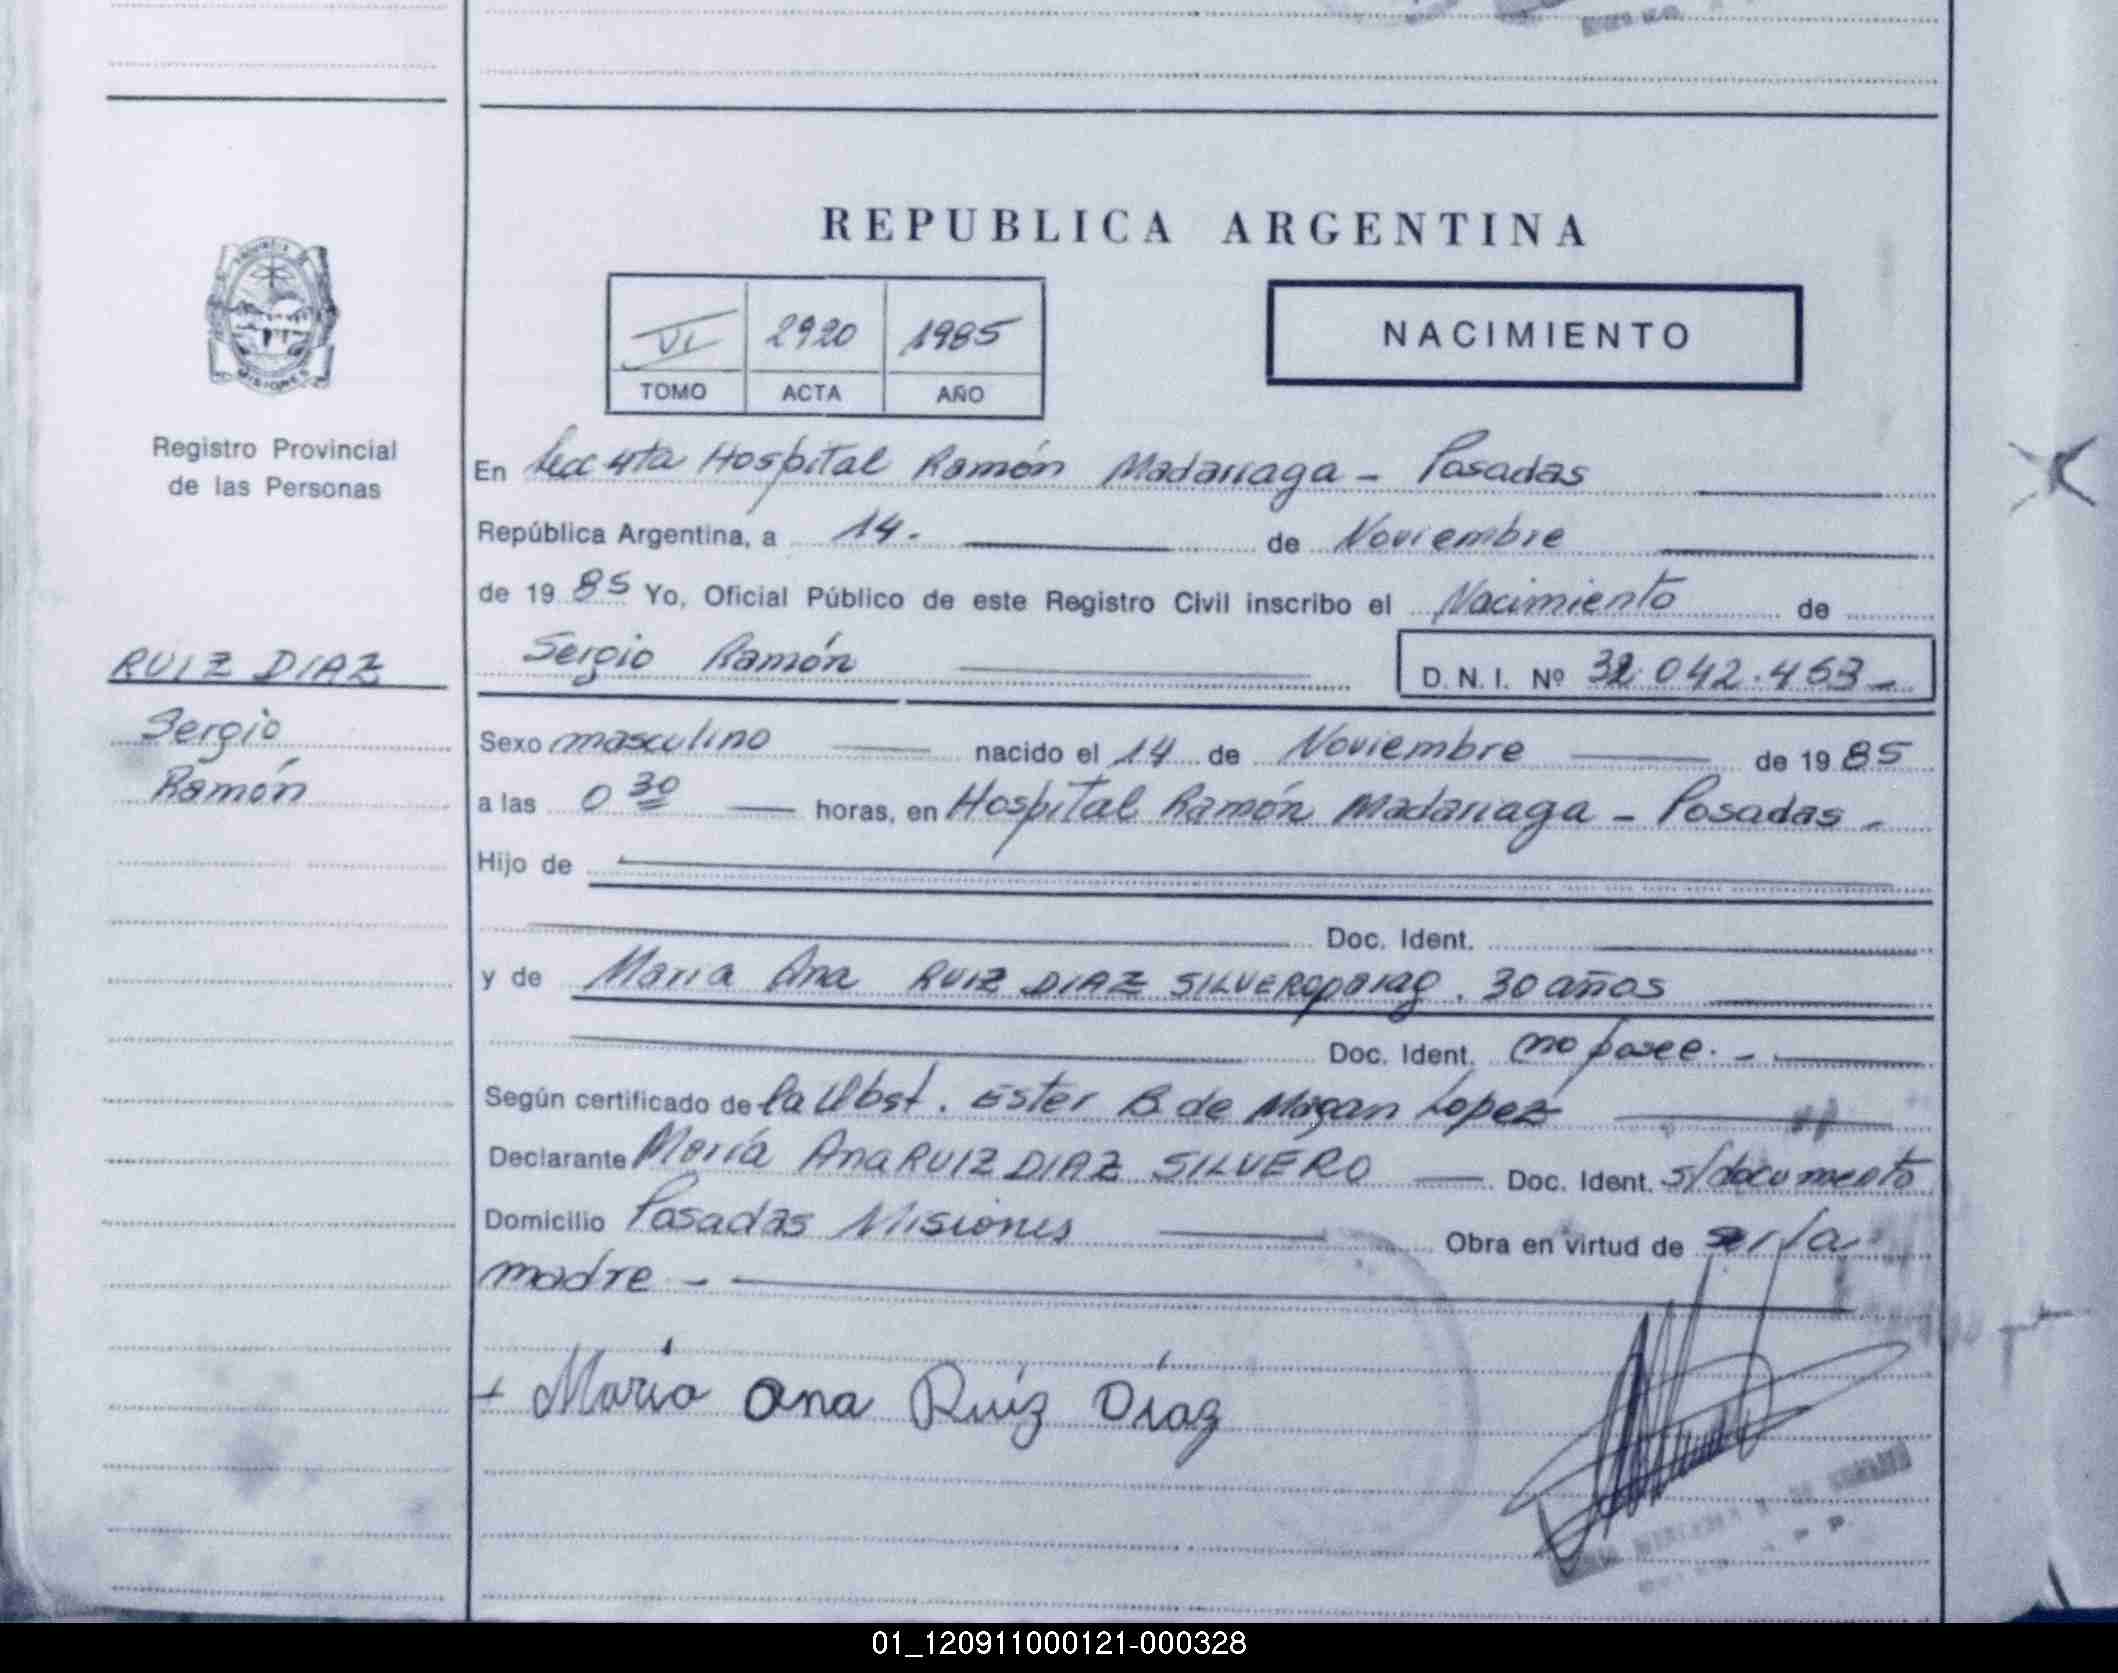 REPUBLICA ARGENTINA
VI 2920 1985
TOMO ACTA AÑO
NACIMIENTO
MISIONES
Registro Provincial
de las Personas
RUIZ DIAZ
Sergio
Ramón
En Secc 4ta Hospital Ramón Madariaga - Posadas
República Argentina, a 14. de Noviembre
de 19 85 Yo, Oficial Público de este Registro Civil inscribo el Nacimiento de
Sergio Ramón D. N. I. Nº 32.042.453-
Sexo masculino nacido el 14 de Noviembre de 19 85
a las 0 30 horas, en Hospital Ramón Madariaga - Posadas -
Hijo de
Doc. Ident.
y de Maria Ana RUIZ DIAZ SILVERO parag. 30 años
Doc. Ident. no posee. -
Según certificado de la Obst. Ester B. de Lopez
Declarante María Ana RUIZ DIAZ SILVERO Doc. Ident. s/documento
Domicilio Posadas Misiones Obra en virtud de ser la
madre -
+ María Ana Ruíz Díaz
01_120911000121-000328